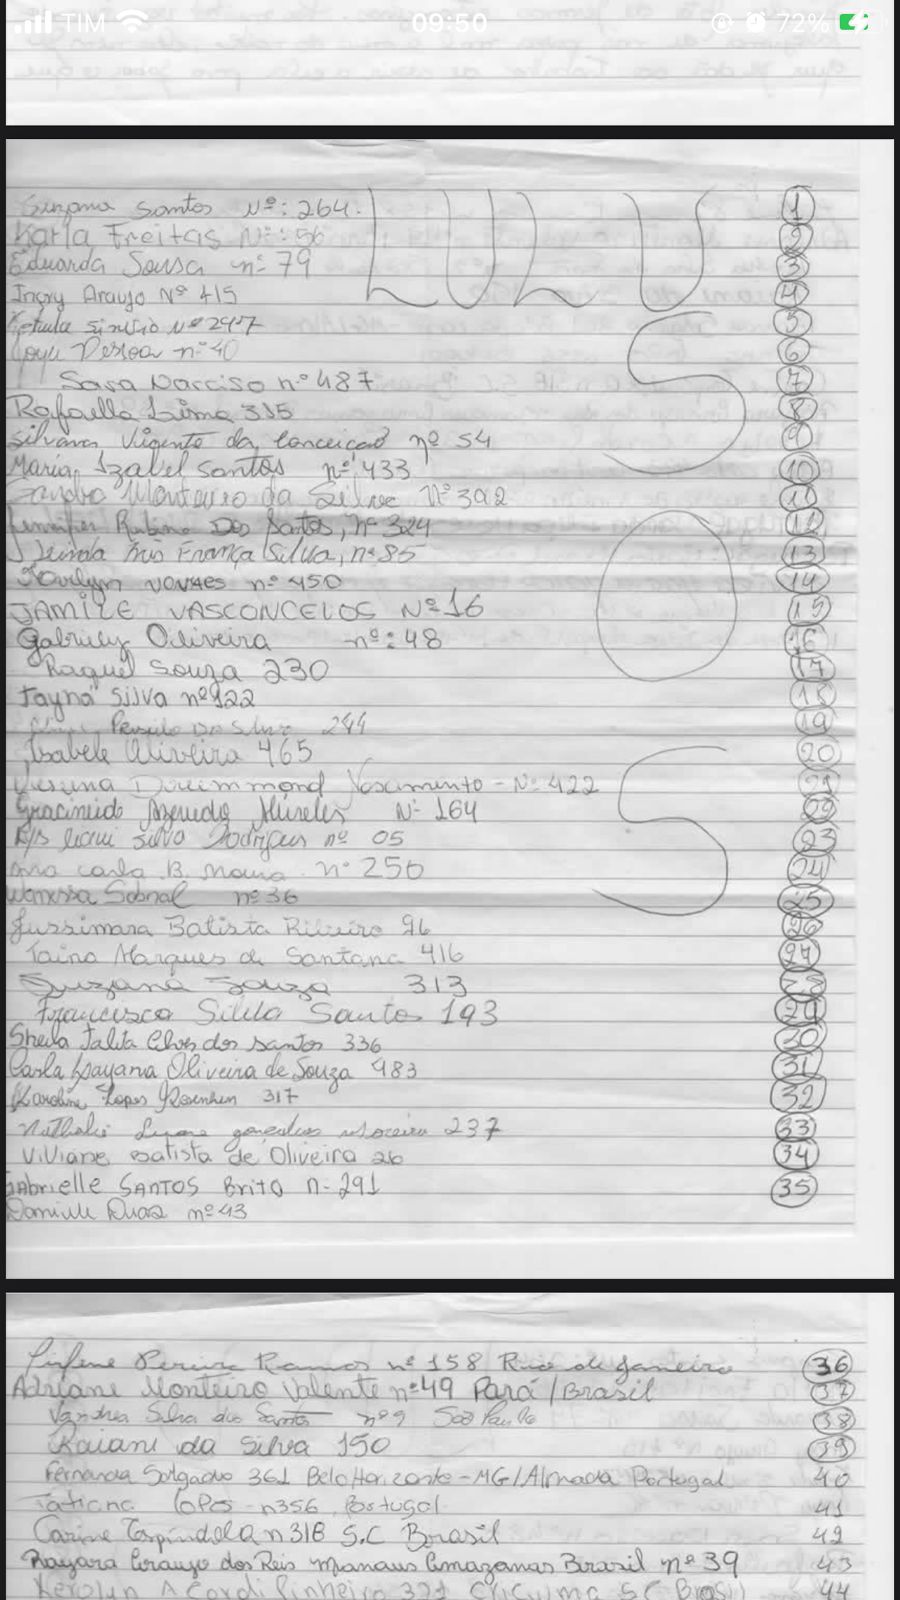 TIM 09:50 72%
Suzana Santos Nº: 264. LULU 1
Karla Freitas Nº: 56 2
Eduarda Sousa nº 79 3
Ingry Araujo Nº 415 4
Nº 247 5
Pessoa nº 40 S 6
Sara Narciso nº 487 7
Rafaella Lima 335 8
Silvana Vicente da Conceição nº 54 9
Maria Izabel Santos nº 433 10
Sandra Monteiro da Silva Nº 392 11
Jennifer Rubino Dos Santos, nº 324 12
Iris França Silva, nº 85 13
Novaes nº 450 O 14
JAMILE VASCONCELOS Nº 16 15
Gabriely Oliveira nº: 48 16
Raquel Souza 230 17
Tayná Silva nº 122 18
244 19
Isabele Oliveira 465 20
Dreimmond Nascimento - Nº 422 21
Azevedo Nº 164 22
Silva Rodrigues nº 05 S 23
Ana Carla B. Moura. nº 250 24
Wanessa Sobral nº 36 25
Jussimara Batista Ribeiro 96 26
Taina Marques de Santana 416 27
Suzana Souza 313 28
Francisca Silva Santos 193 29
Sheila Talita Alves dos Santos 336 30
Carla Dayana Oliveira de Souza 483 31
Karoline Lopes 317 32
Nathalie Gonçalves Moreira 237 33
Viviane Batista de Oliveira 26 34
Gabrielle SANTOS Brito n- 291 35
Danielle nº 43
Pereira Ramos nº 158 Rio de Janeiro 36
Adriane Monteiro Valente nº 49 Pará/Brasil 37
Vandrea Silva dos Santos nº 9 São Paulo 38
Raiani da Silva 150 39
Fernanda Salgado 361 Belo Horizonte - MG/Almada Portugal 40
Tatiana Lopes - n356 Portugal 41
Carine Espindola n 318 S.C Brasil 42
Rayara Araujo dos Reis Manaus Amazonas Brasil nº 39 43
Kerolyn A Cordi Pinheiro 321 Criciuma SC Brasil 44